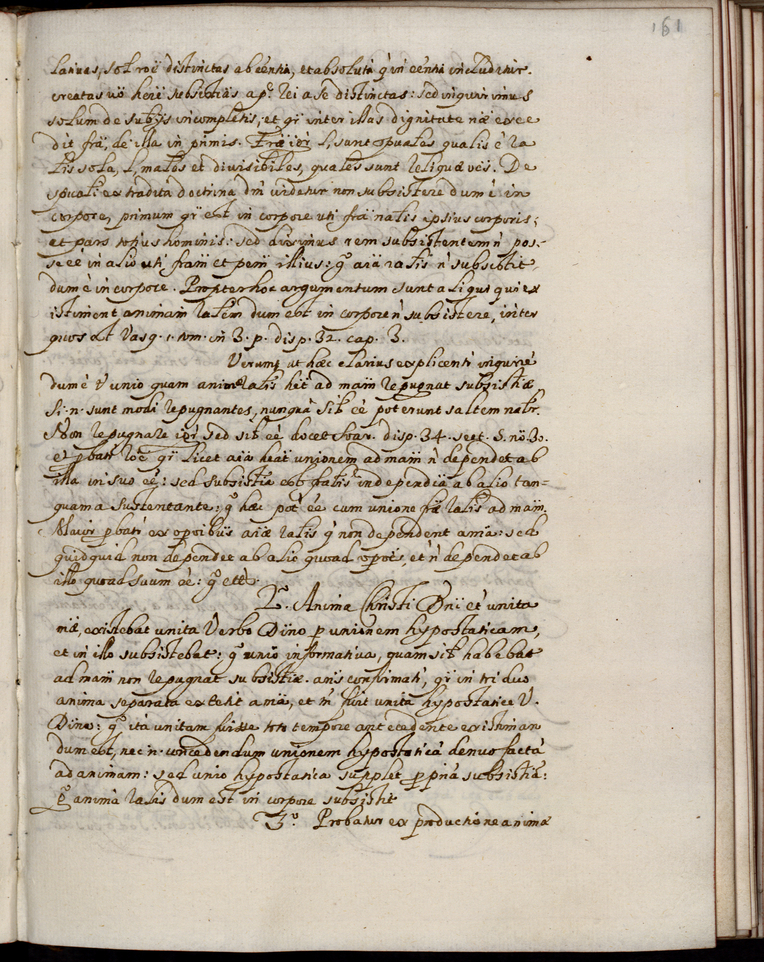 161
lativas, sol roē distinctas ab eentia, et absoluta q̄ in eentia includitur.
creatas uō here subsistias ap. rei a se distinctas: sed inquirimus
solum de subijs incompletis, et qr̄ inter illas dignitate nāe exce
dit frā, de illa in primis. Frāe iēr l, sunt spuales qualis ē ra
tis sola, l, males et divisibiles, quales sunt reliquae oēs. De
spuali ex tradita doctrina dm̄ uidetur non subsistere dum ē in
corpore, primum qr̄ est in corpore uti frā nalis ipsius corporis;
et pars totius hominis: sed diximus rem subsistentem n̄ pos-
se eē in alio uti fram et pem illius: gº aīa ralis n̄ subsistit
dum ē in corpore. Propter hoc argumentum sunt aliqui qui ex
istiment animam ralem dum est in corpore n̄ subsistere, inter
quos est Vasq. 1. tom. in 3. p. disp. 32. cap. 3.
Verum, ut haec clarius explicenti inquire
dum ē ū unio quam anima ralis het ad mam repugnat subsistiae
Si. n. sunt modi repugnantes, nunquā sil eē poterunt saltem natr.
Non repugnare iēr sed sil eē docet Soar. disp. 34. sect. 5. no 30.
et pbatr roē qr̄ licet aīa heat unionem ad mam n̄ dependet ab
illa in suo eē: sed subsistia est talis independia ab alio tan-
quam a sustentante: gº haec pot eē cum unione fāe ralis ad mam.
Maior pbatr ex operibus aīae ralis q̄ non dependent a mā: sed
quidquid non dependet ab alio quoad opes, et n̄ dependet ab
illo quoad suum eē: gº ette.
2º. Anima Christi Dni et unita
māe, existebat unita Verbo Dino p unionem hypostaticam,
et in illo subsistebat: gº unio informativa, quam sil habebat
ad mam non repugnat subsistiae. ans confirmatr, qr̄ in triduo
anima separata extetit a mā, et tn̄ fuit unita hypostatice V.
Dino: gº ita unitam fuisse toto tempore antecedente existiman
dum est, nec n. concedendum unionem hypostaticā denuo factā
ad animam: sed unio hypostatica supplet p pna subsistia:
gº anima ralis dum est in corpore subsistit
3º. Probatur ex productione animae